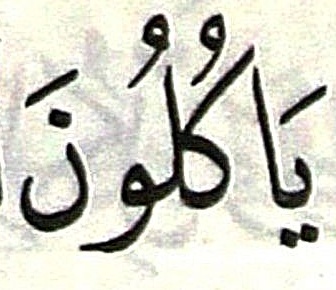 يَاكُلُونَ